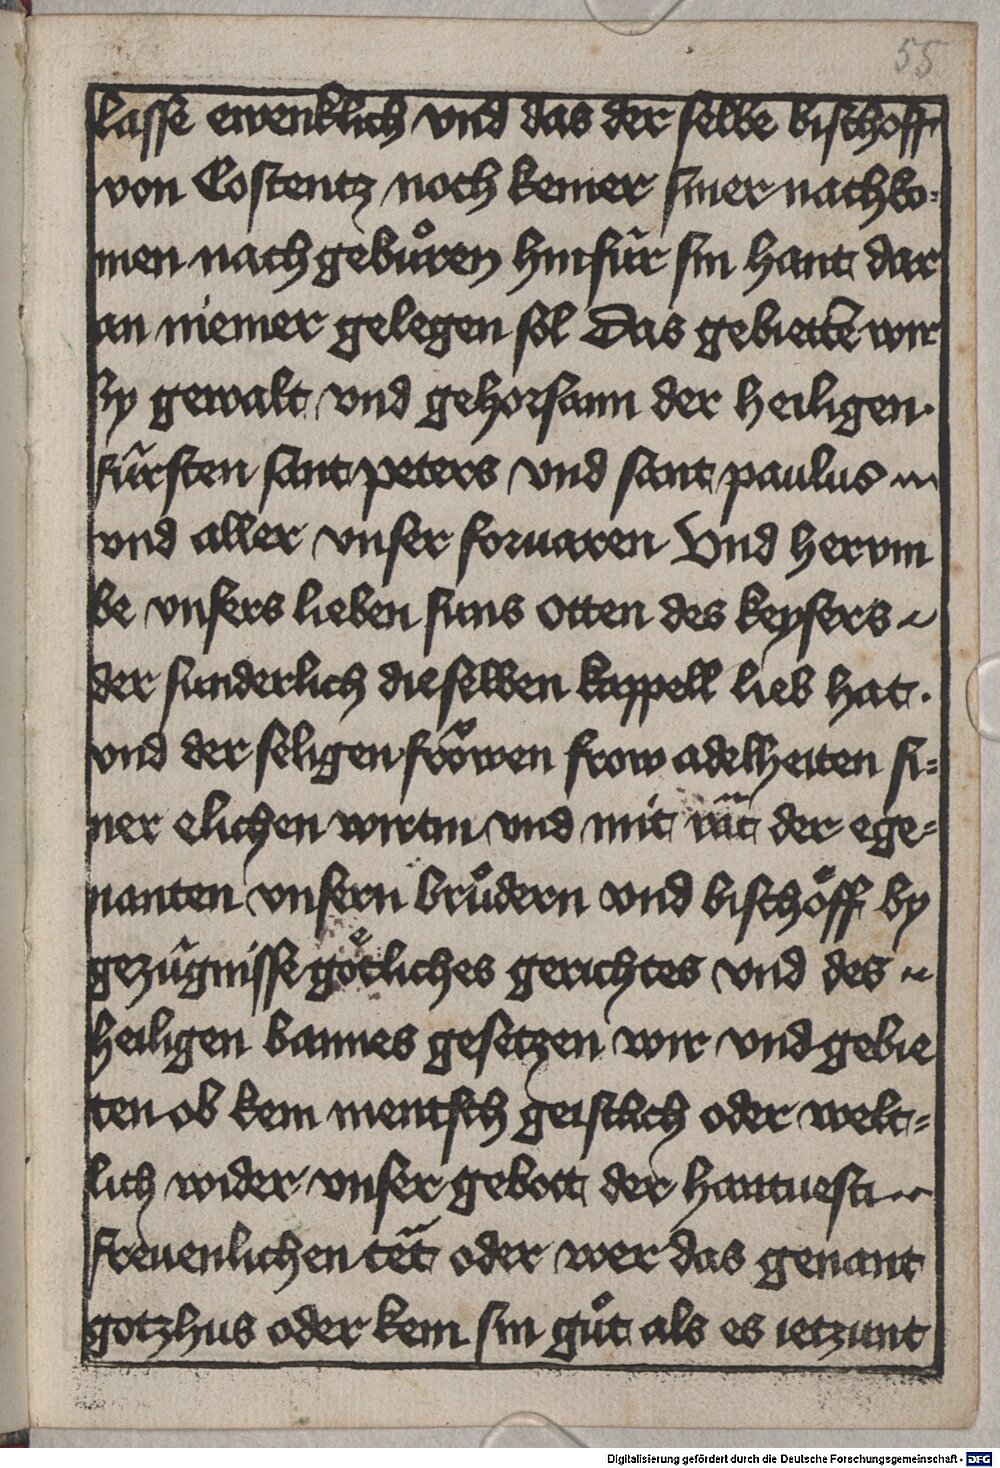 55
lasse ewenklich vnd das der selbe bischoff
von Costentz noch keiner siner nachko-
men nach gebuͦren hinfür sin hant dar
an niemer gelegen sol Das gebiettē wir
by gewalt vnd gehorsami der heiligen.
fürsten sant peters vnd sant paulus
vnd aller vnser foruaren Vnd hervm
be vnsers lieben suns Otten des keysers
der sunderlich dieselben kappell lieb hat.
vnd der seligen froͧwen frow adelheiten si=
ner elichen wirtin vnd mit rät der ege=
nanten vnsern bruͦdern vnd bischöff by
gezügnisse goͤtliches gerichtes vnd des
heiligen bannes gesetzen wir vnd gebie
ten ob kein mentsch geistlich oder welt=
lich wider vnser gebott der hantuesti
freuenlichen tët oder wer das genant
gotzhus oder kein sin guͦt als es ietzunt
Digitalisierung gefördert durch die Deutsche Forschungsgemeinschaft - DFG